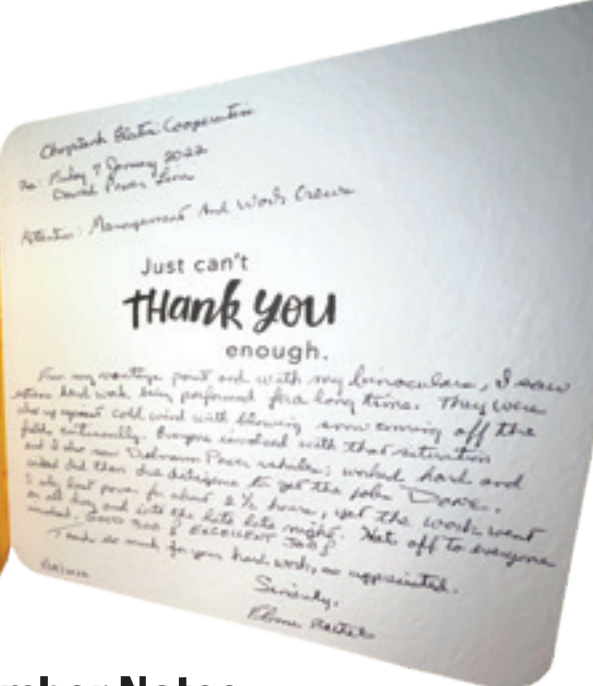 Choptank Electric Cooperative
Re: Friday 7 January 2022
Downed Power Lines
Attention: Management And Work Crews
Just can't
THank you
enough.
From my vantage point and with my binoculars, I saw
hard work being performed for a long time. They were
also up against cold wind with blowing snow coming off the
fields continually. Everyone involved with that situation
and I also saw Delmarva Power vehicles; worked hard and
did their due diligence to get the job DONE.
I only lost power for about 2 ½ hours, yet the work went
on all day and into the late late night. Hats off to everyone
involved. GOOD JOB & EXCELLENT JOB!
Thanks so much for your hard work, so appreciated.
Sincerely,
mber Notes